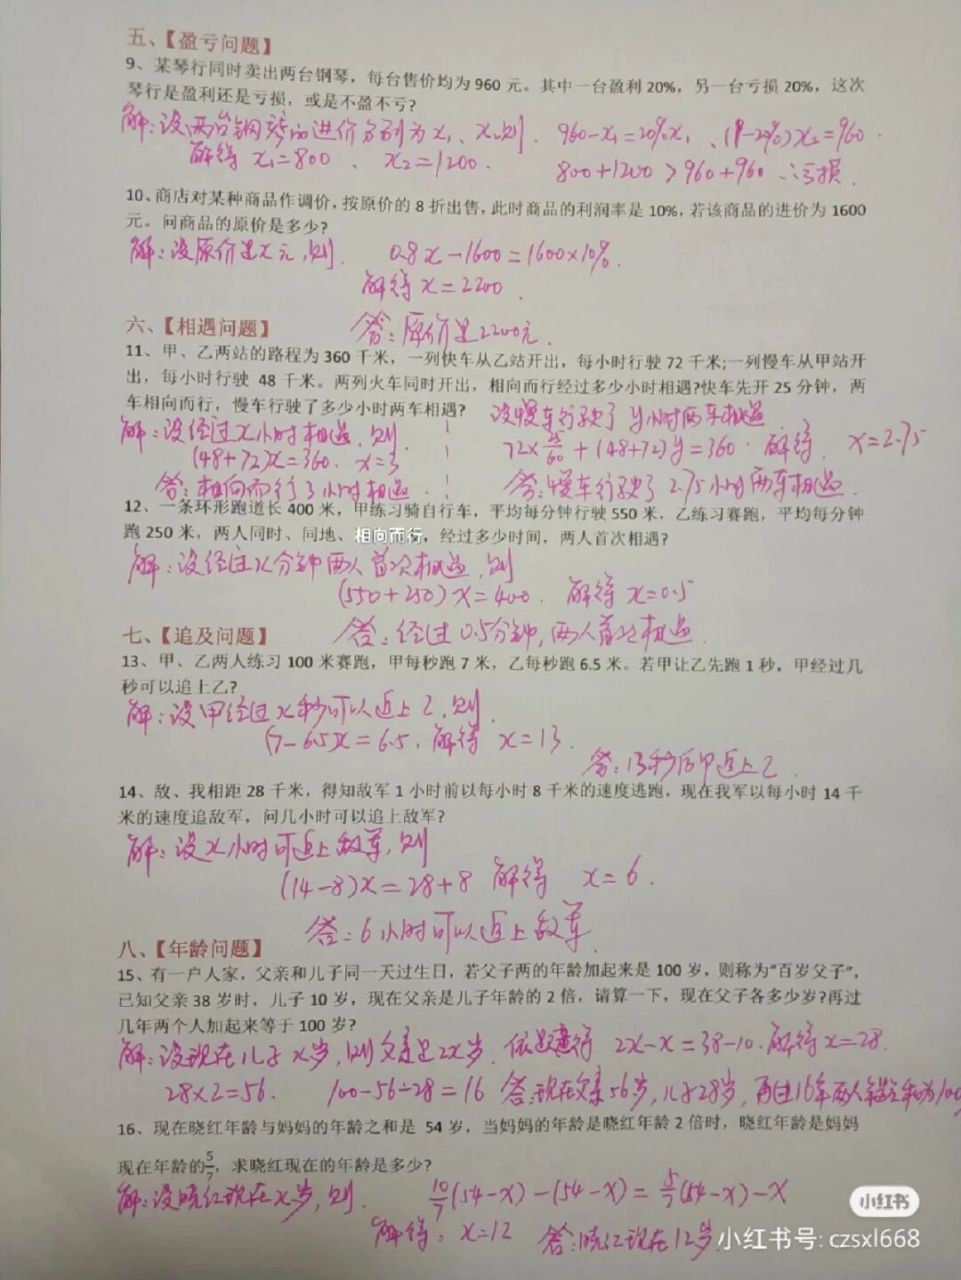 五、【盈亏问题】
9、某琴行同时卖出两台钢琴，每台售价均为960元。其中一台盈利20%，另一台亏损20%，这次
琴行是盈利还是亏损，或是不盈不亏?
解：设两台钢琴的进价分别为x₁、x₂,则. 960-x₁=20%x₁、(1-20%)x₂=960.
解得 x₁=800、x₂=1200. 800+1200>960+960 ∴亏损.
10、商店对某种商品作调价，按原价的8折出售，此时商品的利润率是10%，若该商品的进价为1600
元。问商品的原价是多少?
解：设原价是x元,则. 0.8x-1600=1600×10%.
解得 x=2200.
六、【相遇问题】 答：原价是2200元.
11、甲、乙两站的路程为360千米，一列快车从乙站开出，每小时行驶72千米;一列慢车从甲站开
出，每小时行驶 48千米。两列火车同时开出，相向而行经过多少小时相遇?快车先开25分钟，两
车相向而行，慢车行驶了多少小时两车相遇? 设慢车行驶了y小时两车相遇
解：设经过x小时相遇,则. 72×25/60+(48+72)y=360. 解得 x=2.75
(48+72)x=360. x=3
答：相向而行3小时相遇. 答：慢车行驶了2.75小时两车相遇.
12、一条环形跑道长400米，甲练习骑自行车，平均每分钟行驶550米，乙练习赛跑，平均每分钟
跑250米，两人同时、同地、相向而行，经过多少时间，两人首次相遇?
解：设经过x分钟两人首次相遇,则
(550+250)x=400. 解得 x=0.5
七、【追及问题】 答：经过0.5分钟,两人首次相遇.
13、甲、乙两人练习100米赛跑，甲每秒跑7米，乙每秒跑6.5米。若甲让乙先跑1秒，甲经过几
秒可以追上乙?
解：设甲经过x秒可以追上乙,则.
(7-6.5)x=6.5. 解得 x=13.
答：13秒后甲追上乙.
14、敌、我相距28千米，得知敌军1小时前以每小时8千米的速度逃跑，现在我军以每小时14千
米的速度追敌军，问几小时可以追上敌军?
解：设x小时可追上敌军,则
(14-8)x=28+8 解得 x=6.
答：6小时可以追上敌军.
八、【年龄问题】
15、有一户人家，父亲和儿子同一天过生日，若父子两的年龄加起来是100岁，则称为"百岁父子"，
已知父亲38岁时，儿子10岁，现在父亲是儿子年龄的2倍，请算一下，现在父子各多少岁?再过
几年两个人加起来等于100岁?
解：设现在儿子x岁,则父亲是2x岁. 依题意得 2x-x=38-10. 解得x=28.
28×2=56. 100-56-28=16 答：现在父亲56岁,儿子28岁,再过16年两人年龄和为100
16、现在晓红年龄与妈妈的年龄之和是 54岁，当妈妈的年龄是晓红年龄2倍时，晓红年龄是妈妈
现在年龄的5/7，求晓红现在的年龄是多少?
解：设晓红现在x岁,则 10/7(54-x)-(54-x)=5/7(54-x)-x
解得：x=12 答：晓红现在12岁.
小红书
小红书号: czsxl668